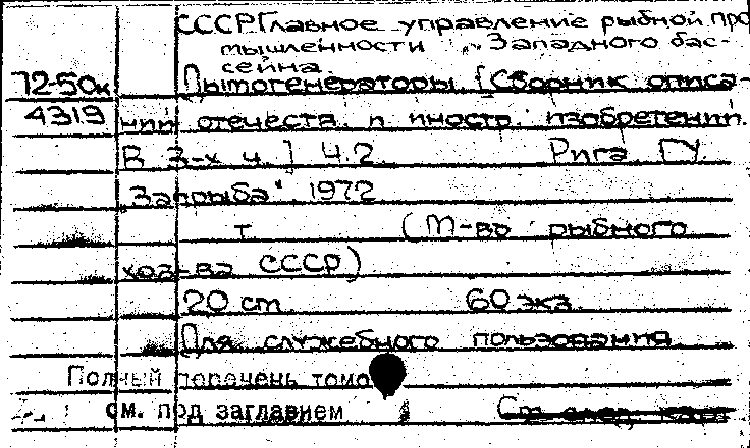 СССР. Главное управление рыбной про
мышленности „Западного бас-
сейна
72-50к Дымогенераторы. [Сборник описа-
4319 ний отечеств. и иностр. изобретений.
В 3-х ч.] Ч.2. Рига. ГУ.
"Запрыба". 1972
т (М-во рыбного
хоз-ва СССР)
20 cm. 60 экз.
Для служебного пользования
Полный перечень томов
см. под заглавием См. след. карт